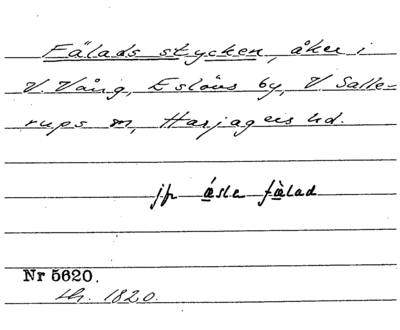 Fälads stycken, åker i
V. Vång, Eslövs by, V. Salle-
rups sn, Harjagers hd.
jfr æsle fælad
Nr 5620.
LH. 1820.